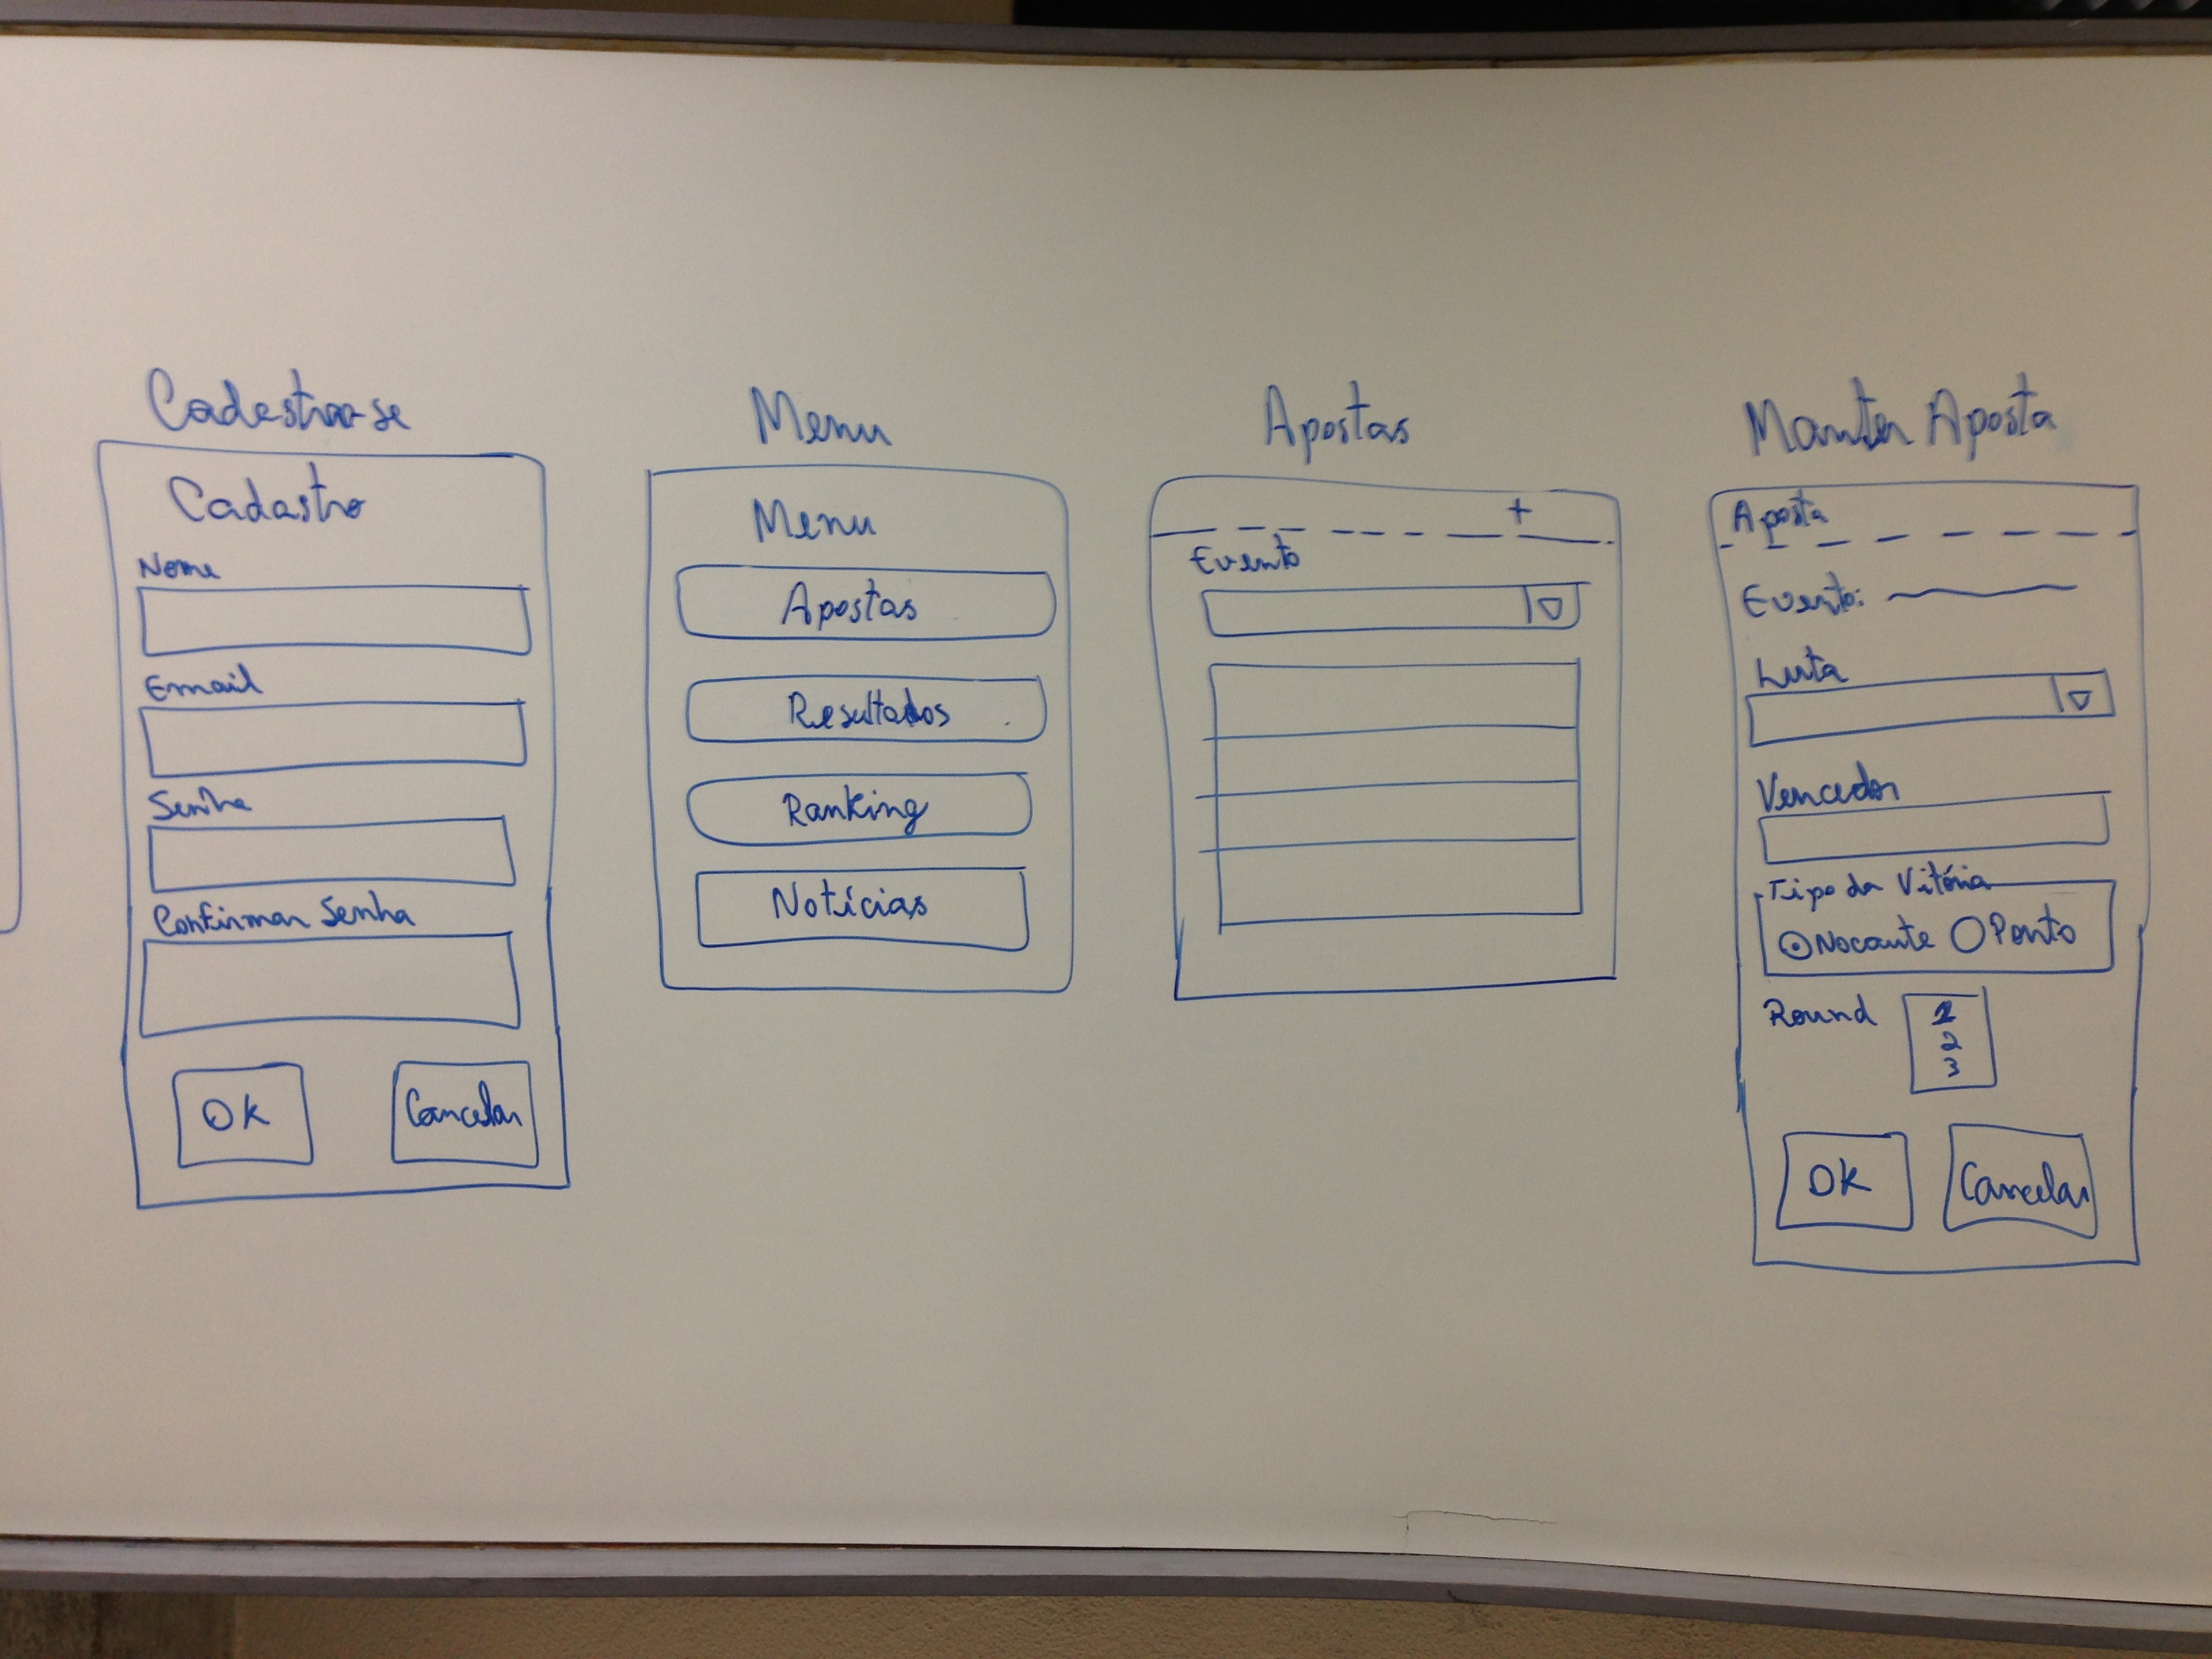 Cadastra-se
Cadastro
Nome
Email
Senha
Confirmar Senha
OK
Cancelar
Menu
Menu
Apostas
Resultados
Ranking
Notícias
Apostas
+
Evento
Manter Aposta
Aposta
Evento:
Luta
Vencedor
Tipo da Vitória
Nocaute Ponto
Round 1
2
3
OK
Cancelar